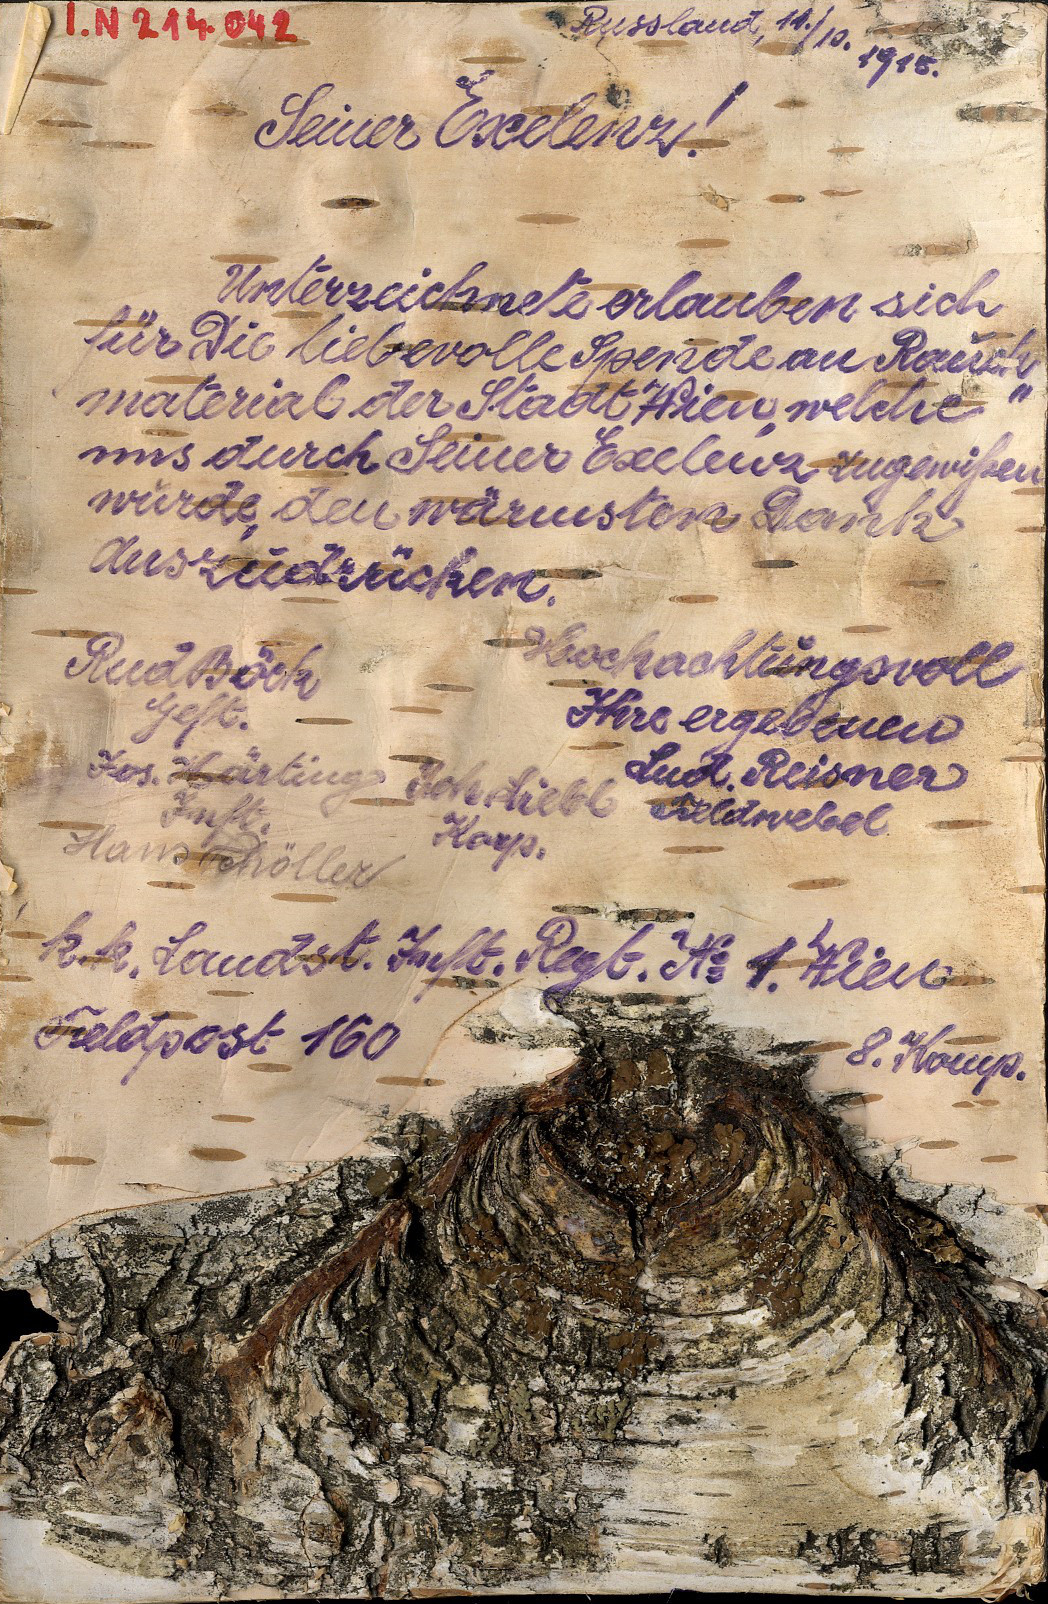 I.N 214.042
Russland, 11./10. 1915.
Seiner Exelenz!
Unterzeichnete erlauben sich
für Die liebevolle Spende an Rauch„
material der Stadt Wien, welche
uns durch Seiner Exelenz zugewißen
wurde, den wärmsten Dank
auszudrücken.
Hochachtungsvoll
Ihre ergebenen
Lud. Reisner
Feldwebel
Rud Böck
Gefr.
Jos. Härting
Inft.
Joh Liebl
Korp.
Hans Schöller
k.k. Landst. Inft. Regt. No 1. Wien
Feldpost 160
8. Komp.